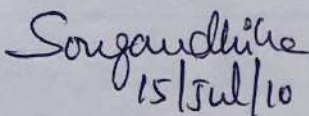 Sougandhika
15/Jul/10